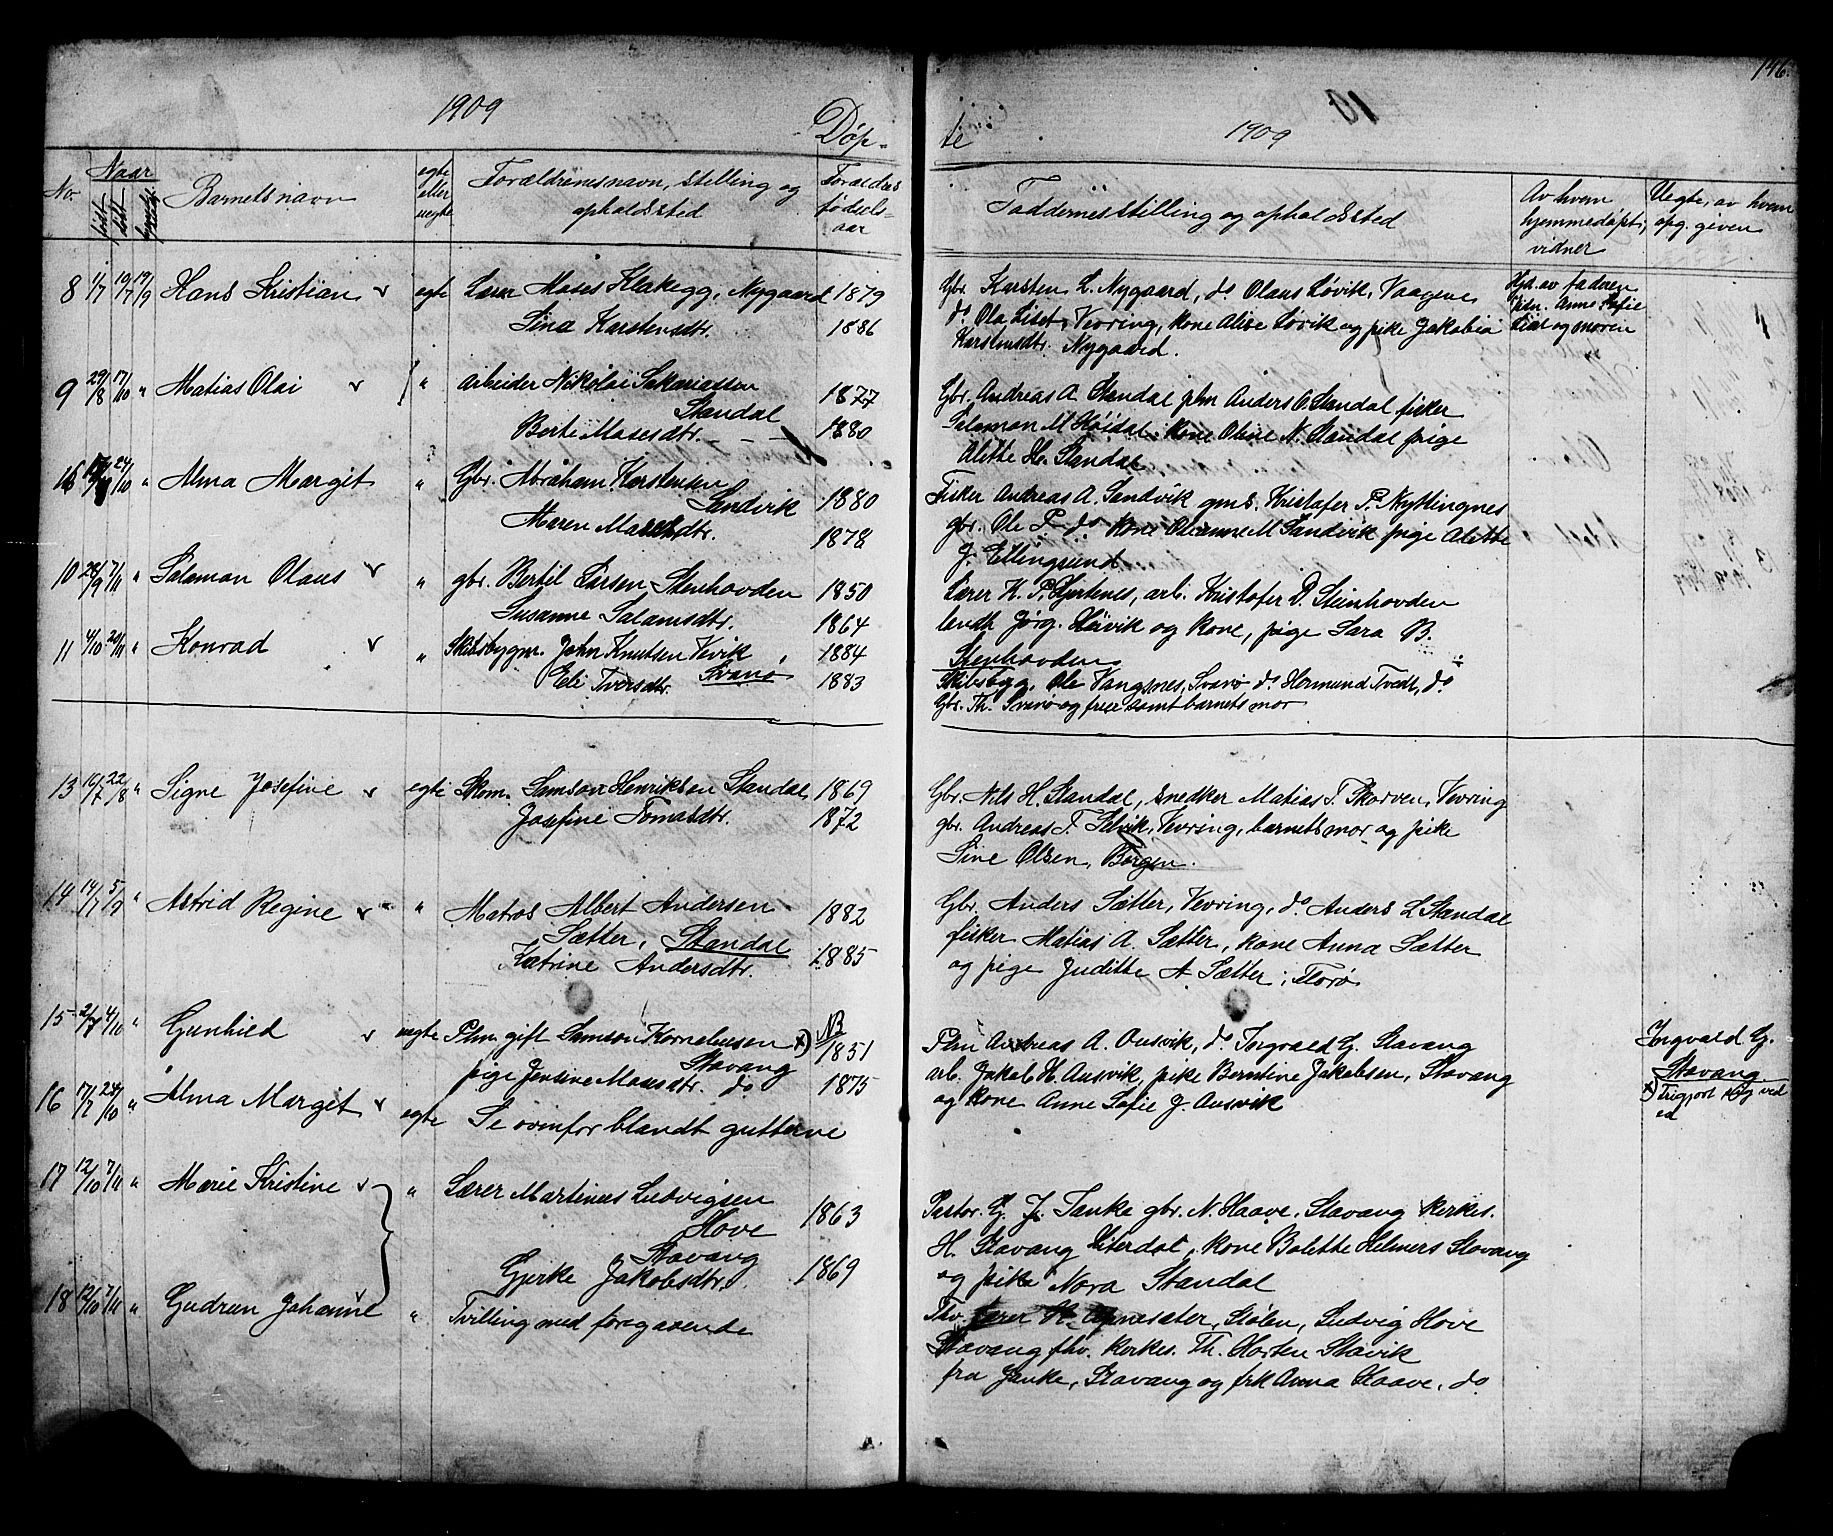 146.
1909
Døp-
te
1909
No. Naar født døbt Barnets navn egte eller uegte Forældrenes navn, stilling og opholdssted Forældres fødsels-aar
Faddernes stilling og opholdssted Av hvem hjemmedøpt; vidner Uegte, av hvem opg. given
8 1/7 19/7 19/9 Hans Kristian egte Lærer Moses Klakegg, Nygaard 1879
Sina Karstensdtr. 1886
Gbr. Karsten L. Nygaard, do Olaus Løvik, Vaagene
do Ola Liset, Vevring, kone Alise Løvik og pike Jakobia
Karstensdtr. Nygaard.
Hjd. av faderen
vidn. Anne Sofie
og moren
9 29/8 17/10 " Matias Olai " arbeider Nikolai Sakariassen
Standal 1877
Berte Mosesdtr. - - 1880
Gbr. Andreas A. Standal plm Anders O. Standal fisker
Salamon M Høidal, kone Oline N. Standal pige
Alette H. Standal
16 24/10 " Alma Margit " Gbr. Abraham Karstensen
Sandvik 1880
Maren Mosesdtr. 1878
Fisker Andreas A. Sandvik gms. Kristofer P. Nyttingnes
gbr. Ole P. do kone Olianne M Sandvik pige Alette
J. Ellingsund
10 28/9 7/11 " Salamon Olaus " gbr. Bertil Larsen Stenhovden 1850
Susanne Salamsdtr. 1864
Lærer K. P. Hjertenes, arb. Kristofer D. Steinhovden
lendh Jørg. Høivik og kone, pige Sara B.
Stenhovden
11 4/10 20/11 " Konrad " Skibsbygm. John Knutsen Vevik 1884
Eli Iversdtr. Svanø 1883
Skibsbyg. Ole Vangsnes, Svanø do Hermund Tvedt, do
Gbr. Th. Svanø og frue samt barnets mor
13 16/7 22/8 " Signe Josefine egte Skom. Samson Henriksen Standal 1869
Josefine Tomasdtr. 1872
Gbr. Nils H. Standal, snedker Matias T. Skorven, Vevring
gbr. Andreas T. Selvik, Vevring, barnets mor og pike
Sine Olsen, Bergen.
14 14/7 5/9 " Astrid Regine " Matros Albert Andersen 1882
Sætter, Standal
Katrine Andersdtr. 1885
Gbr. Anders Sætter, Vevring, do Anders L Standal
fisker Matias A. Sætter, kone Anna Sætter
og pige Juditte A. Sætter, Florø
15 2/7 4/10 " Gunhild uegte Plm. gift Samson Korneliussen x) NB 1851
Stavang
pige Jensine Mosesdtr. do 1875
Plm Andreas A. Ausvik, do Ingvald G. Stavang
arb. Jakob H. Ausvik, pike Berntine Jakobsen, Stavang
og kone Anne Sofie J. Ausvik
Ingvald G.
Stavang
x) Frigjort ved
ed
16 17/7 24/10 " Alma Margit egte Se ovenfor blandt gutterne
17 12/10 7/11 " Marie Kristine " Lærer Martinus Ludvigsen
Hove 1863
Stavang
Gjerke Jakobsdtr. 1869
Pastor G. J. Tanke gbr. N. Haave, Stavang kirkes.
H. Stavang Literdal, kone Bolette Helmers Stavang
og pike Nora Standal
18 12/10 7/11 " Gudrun Johanne " Tvilling med foregaaende
Fhv. lærer H. Apnesæter, Stølen, Ludvig Hove
Stavang fhv. kirkes. Th. Horten Stavik
fru Tanke, Stavang og frk Anna Haave, do